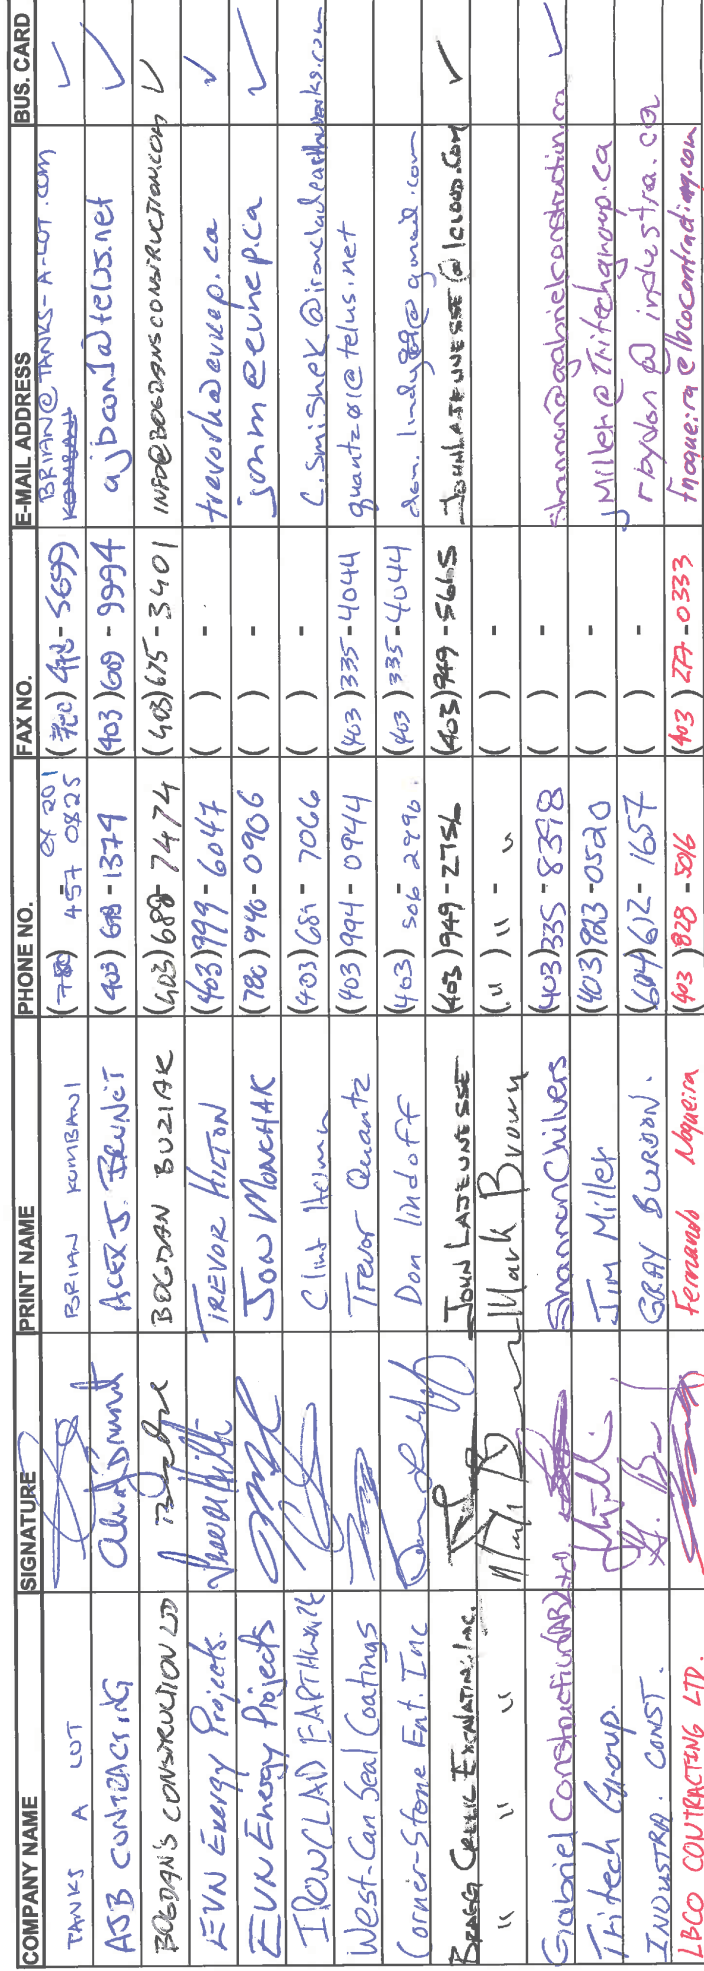 COMPANY NAME SIGNATURE PRINT NAME PHONE NO. FAX NO. E-MAIL ADDRESS BUS. CARD
TANKS A LOT BRIAN KOMBANI (780) 457 0825 ex 201 BRIAN@TANKS-A-LOT.COM ✓
AJB CONTRACTING ALEX J. BRUNET (403) 678-1379 (403) 609-9994 ajbcon1@telus.net ✓
BOGDAN'S CONSTRUCTION LTD BOGDAN BUZIAK (403) 688-7474 (403) 675-3401 INFO@BOGDANSCONSTRUCTION.COM ✓
EVN Energy Projects. TREVOR HILTON (403) 999-6047 ( ) - trevorh@evnep.ca ✓
EVN Energy Projects JON MONCHAK (780) 946-0906 ( ) - jonm@evnep.ca ✓
IRONCLAD EARTHWORK Clint (403) 681-7066 ( ) - C.Smishek@ironcladearthworks.com
West-Can Seal Coatings Trevor Quantz (403) 994-0944 (403) 335-4044 quantz01@telus.net
Corner-Stone Ent. Inc Don lindoff (403) 506-2996. (403) 335-4044 @gmail.com
BRAGG CREEK EXCAVATING INC. JOHN LAJEUNESSE (403) 949-2756 (403) 949-5665 JOHNLAJEUNESSE@ICLOUD.COM ✓
" " " " Mark Brown (") " - " ( ) -
Gabriel Construction (AB) Ltd. Shannon Chilvers (403) 335-8398 ( ) - Shannon@gabrielconstruction.ca ✓
Tritech Group. Jim Miller (403) 923-0520 ( ) - jMiller@Tritechgroup.ca
INDUSTRA. CONST. GRAY BURDON. (604) 612-1657 ( ) - @industra.ca
LBCO CONTRACTING LTD. Fernando Nogueira (403) 828-5016 (403) 277-0333 fnogueira@lbcocontracting.com